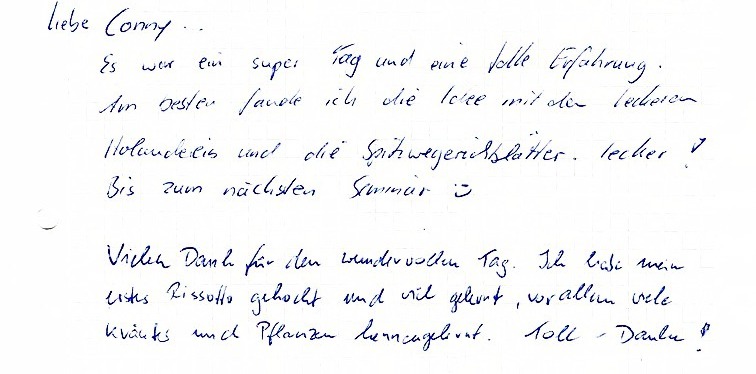 liebe Conny..
Es war ein super Tag und eine tolle Erfahrung.
Am besten fande ich die Idee mit den leckeren
Holundereis und die Spitzwegerichblätter. lecker!
Bis zum nächsten Seminar :)
Vielen Dank für den wundervollen Tag. Ich habe mein
erstes Rissotto gekocht und viel gelernt, vor allem viele
Kräuter und Pflanzen kennengelernt. Toll - Danke!